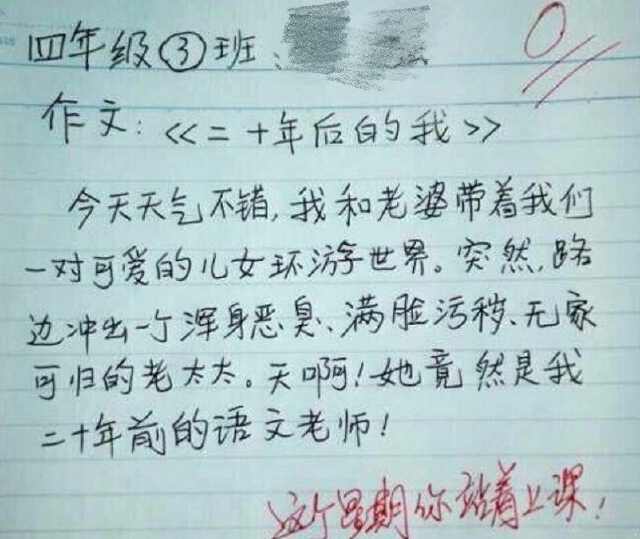 四年级③班:
0
作文:<<二十年后的我>>
今天天气不错,我和老婆带着我们
一对可爱的儿女环游世界。突然,路
边冲出一个浑身恶臭、满脸污秽、无家
可归的老太太。天啊!她竟然是我
二十年前的语文老师!
这个星期你站着上课!